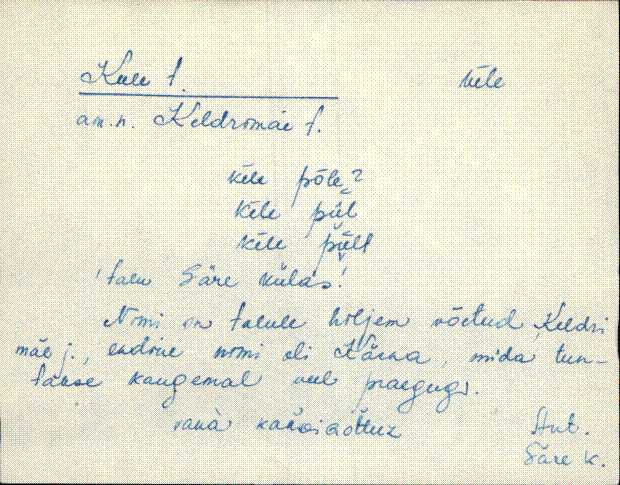 Kele t. kele
am.n. Keldromäe t.
kele põle?
kele pül
kele pült
'talu Säre külas.'
Nimi on talule hiljem võetud Keldri
mäe j., endine nimi oli Kärna, mida tun-
takse kaugemal veel praegugi.
vana
Ant.
Säre k.